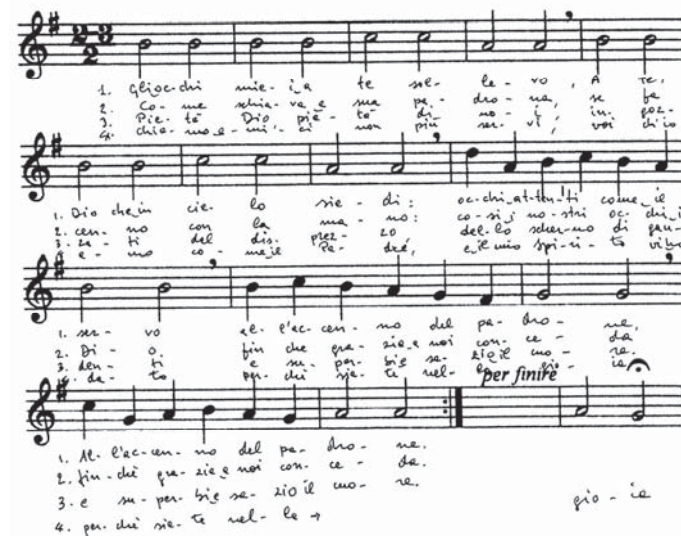 1. Gli oc-chi mie-i a te sol-le-vo, A te,
2. Co-me schia-va e sua pa-dro-na, se fa
3. Pie-tà Dio pie-tà di no-i, in-goz-
4. chia-mo a-mi-ci non più ser-vi, voi di co
1. Dio che in cie-lo sie-di: oc-chi at-ten-ti come il
2. cen-no con la ma-no: co-sì i no-stri oc-chi, i
3. za-ti del dis-prez-zo del-lo scher-no di gau-
e-mo co-me il Pa-dre, e il mio spi-ri-to vi ho
1. ser-vo al-l'ac-cen-no del pa-dro-ne,
2. Di-o. fin che gra-zia a noi con-ce-da
3. den-ti e su-per-bi è sa-zio il cuo-re.
da-to per-ché sia-te nel-la gio-ia
per finire
1. Al-l'ac-cen-no del pa-dro-ne.
2. fin-ché gra-zia a noi con-ce-da.
3. e su-per-bi è sa-zio il cuo-re.
4. per-ché sia-te nel-la → gio-ia